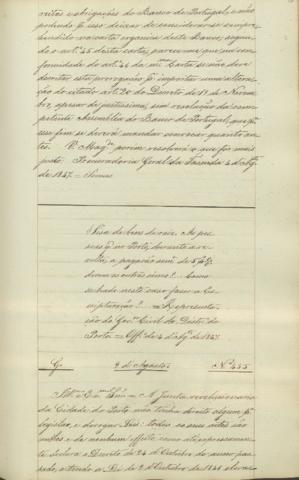 reitos e obrigações do Banco de Portugal, e não
podendo p isso deixar de considerar-se compre-
hendido na carta organica deste Banco, segun-
do o art.º 45 desta carta, parece-me que na con-
formidade do art.º 46 da m.ma Carta se não deve
decretar esta prorogação p importar uma altera-
ção do citado art.º 20 do Decreto de 19 de Novem-
bro, apesar de justissima, sem resolução da com-
petente Assemblea do Banco de Portugal, que p.a
esse fim se deverá mandar convocar quanto an-
tes. V. Mag.e porem resolverá o que for mais
justo. Procuradoria Geral da Fazenda 4 d'Ag.to
de 1847.
Sisa de bens de raiz. As pes-
soas q no Porto, durante a re-
volta, a pagarão
devem os outros cinco? Como
se hade neste caso fazer a
Representa-
ção do Gov.or Civil do Destr.o do
Porto = Off.o de 4 d'Ag.to de 1847.
G. 9 de Agosto N.º 455
Ill.mo e Ex.mo Snr. = A Junta revolucionaria
da Cidade do Porto não tinha direito algum p.a
legislar, e derogar Leis: todos os seus actos são
nullos e de nenhum effeito como até expressamen-
te declara o Decreto de 24 de Outubro do anno pas-
sado, e tendo a Lei de 2 de Outubro de 1841